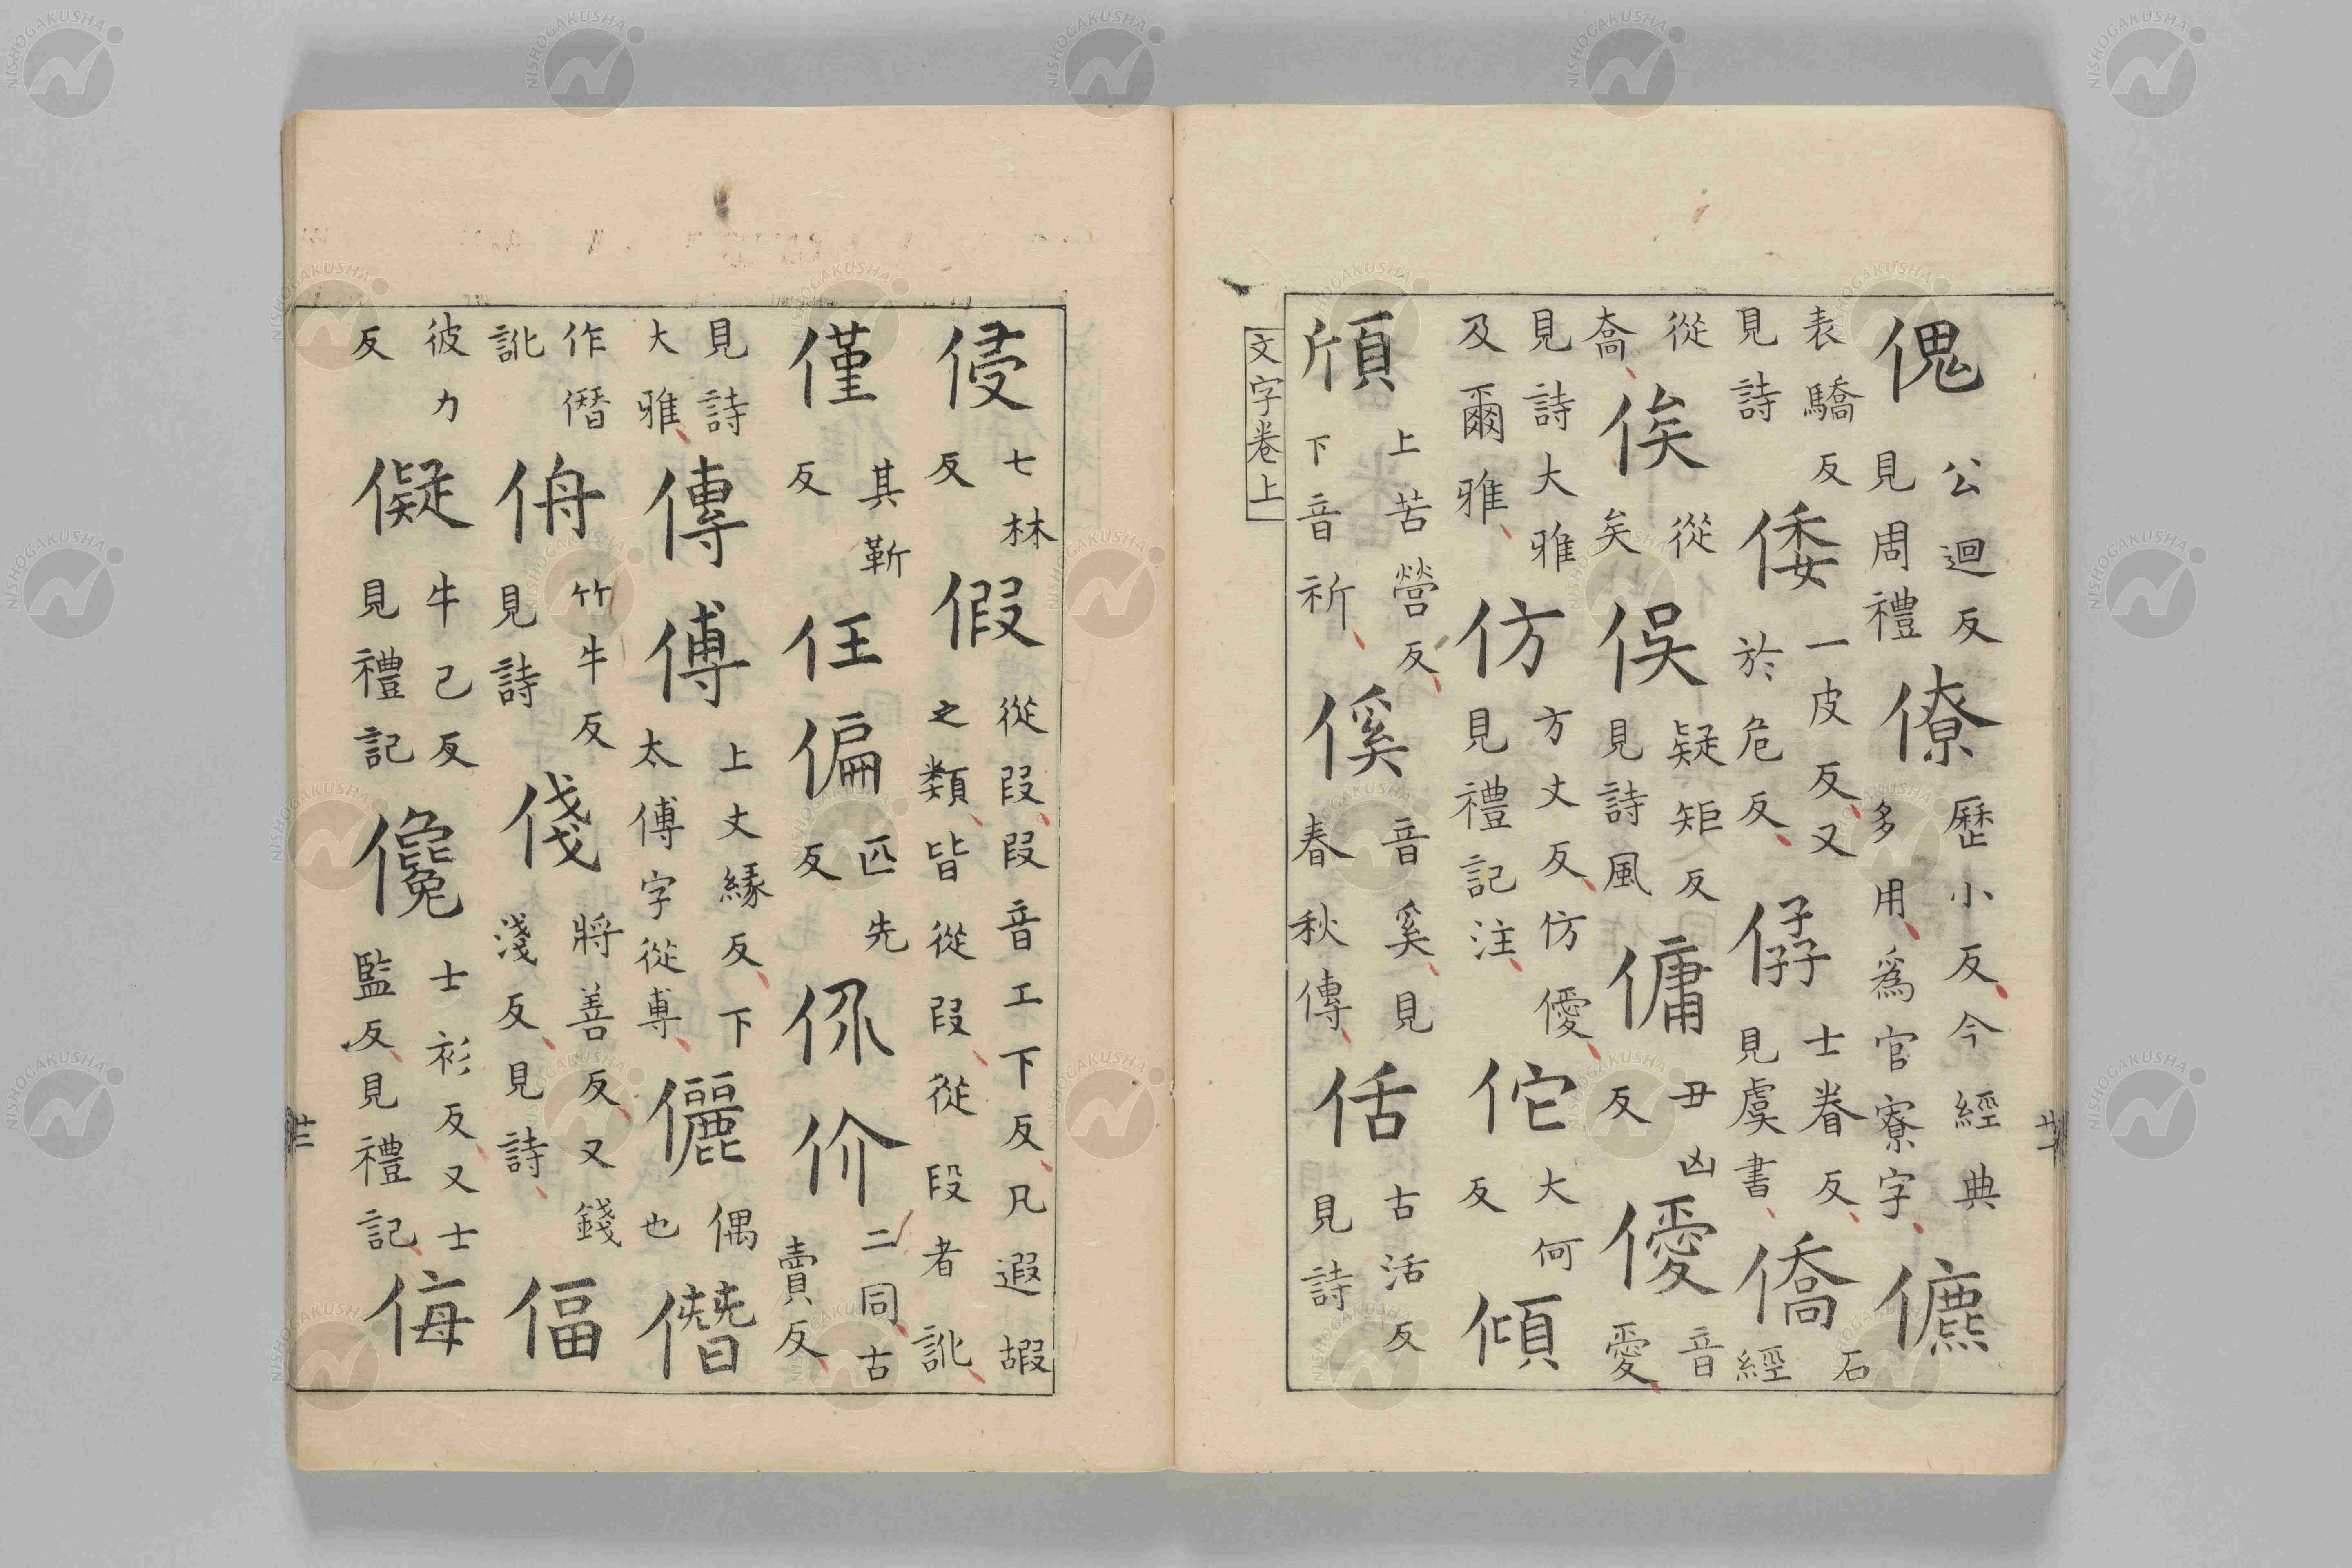 傀公迴反見周禮僚歷小反今經典多用爲官寮字儦
表驕反見詩倭一皮反又於危反僝士眷反見虞書僑石經
從喬俟從矣俁疑矩反見詩風傭丑凶反僾音愛
見詩大雅及爾雅仿方丈反仿僾見禮記注佗大何反傾
頎上苦營反下音祈傒音奚見春秋傳佸古活反見詩
文字卷上
廿一
侵七林反假從叚叚音工下反凡遐嘏之類皆從叚從段者訛
僅其靳反任偏匹先反价二同古賣反
見詩大雅傳傅上丈緣反下太傅字從尃儷偶也僭
作僣訛侜竹牛反見詩俴將善反又錢淺反見詩偪
彼力反儗牛己反見禮記儳士衫反又士監反見禮記侮